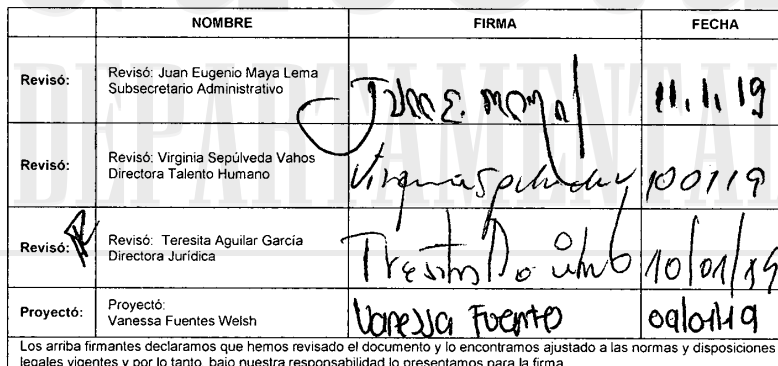 NOMBRE FIRMA FECHA
Revisó: Revisó: Juan Eugenio Maya Lema
Subsecretario Administrativo
11.1.19
Revisó: Revisó: Virginia Sepúlveda Vahos
Directora Talento Humano
Virginia Sepulveda 100119
Revisó: Revisó: Teresita Aguilar García
Directora Jurídica
10/01/19
Proyectó: Proyectó:
Vanessa Fuentes Welsh
Vanessa Fuentes 09/01/19
Los arriba firmantes declaramos que hemos revisado el documento y lo encontramos ajustado a las normas y disposiciones
legales vigentes y por lo tanto, bajo nuestra responsabilidad lo presentamos para la firma.
DEPARTAMENTAL